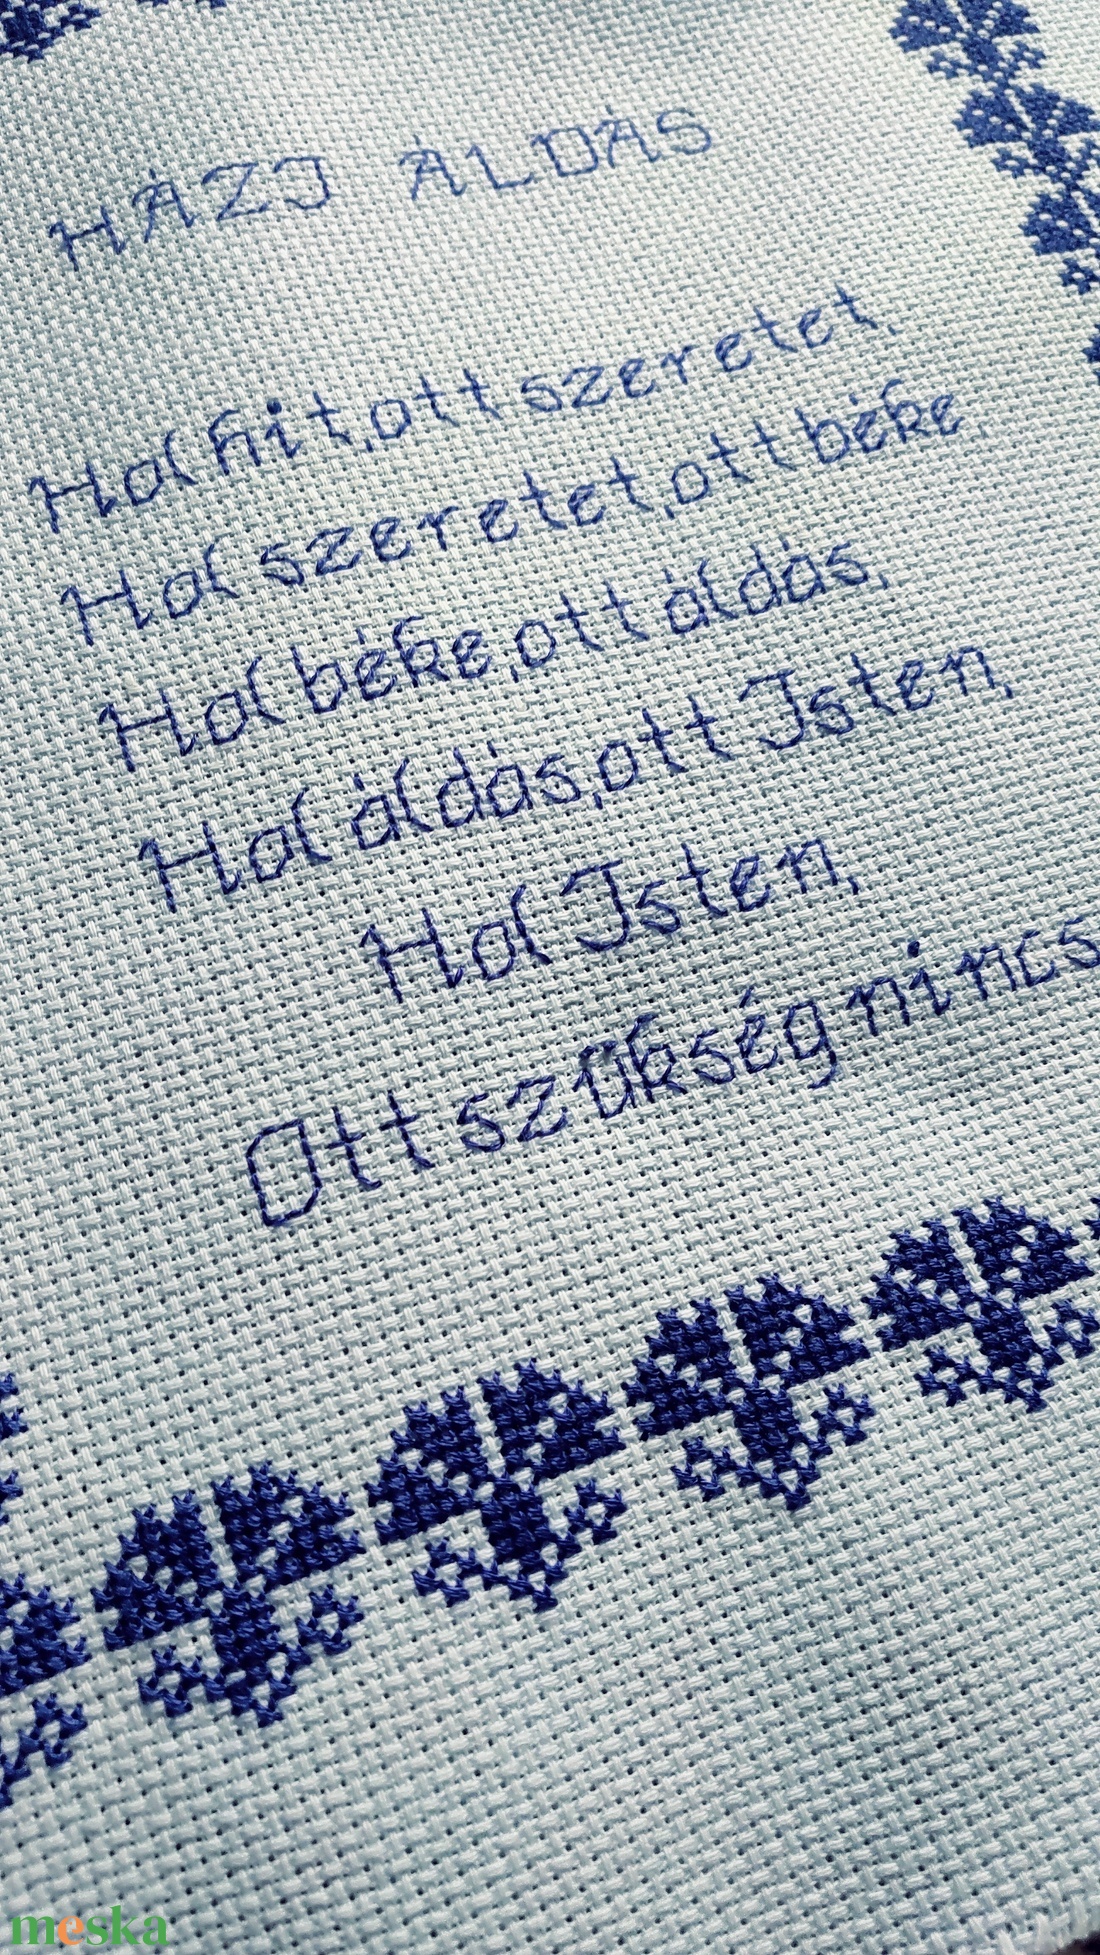 HÁZI ÁLDÁS
Hol hit, ott szeretet,
Hol szeretet, ott béke,
Hol béke, ott áldás,
Hol áldás, ott Isten,
Hol Isten,
Ott szükség nincs
meska